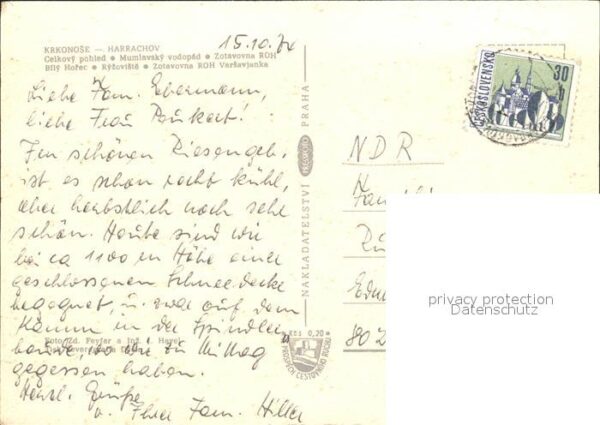 KRKONOŠE — HARRACHOV
Celkový pohled • Mumlavský vodopád • Zotavovna ROH
Bílý Hořec • Rýžoviště • Zotavovna ROH Varšavjanka
15.10.74
Liebe Fam. Ebermann,
liebe Frau Punkert!
Im schönen Riesengeb.
ist es schon recht kühl,
aber herbstlich noch sehr
schön. Heute sind wir
bei ca 1100 m Höhe einer
geschlossenen Schneedecke
begegnet, u. zwar auf dem
Kamm in der Spindler-
baude, wo wir zu Mittag
gegessen haben.
Herzl. Grüße
v. Ihrer Fam. Hiller
Foto Zd. Feyfar a Ing. J. Havel
NAKLADATELSTVÍ PRESSFOTO PRAHA
KČS 0,20
ČESKOSLOVENSKO
30 h
NDR
802
privacy protection
Datenschutz